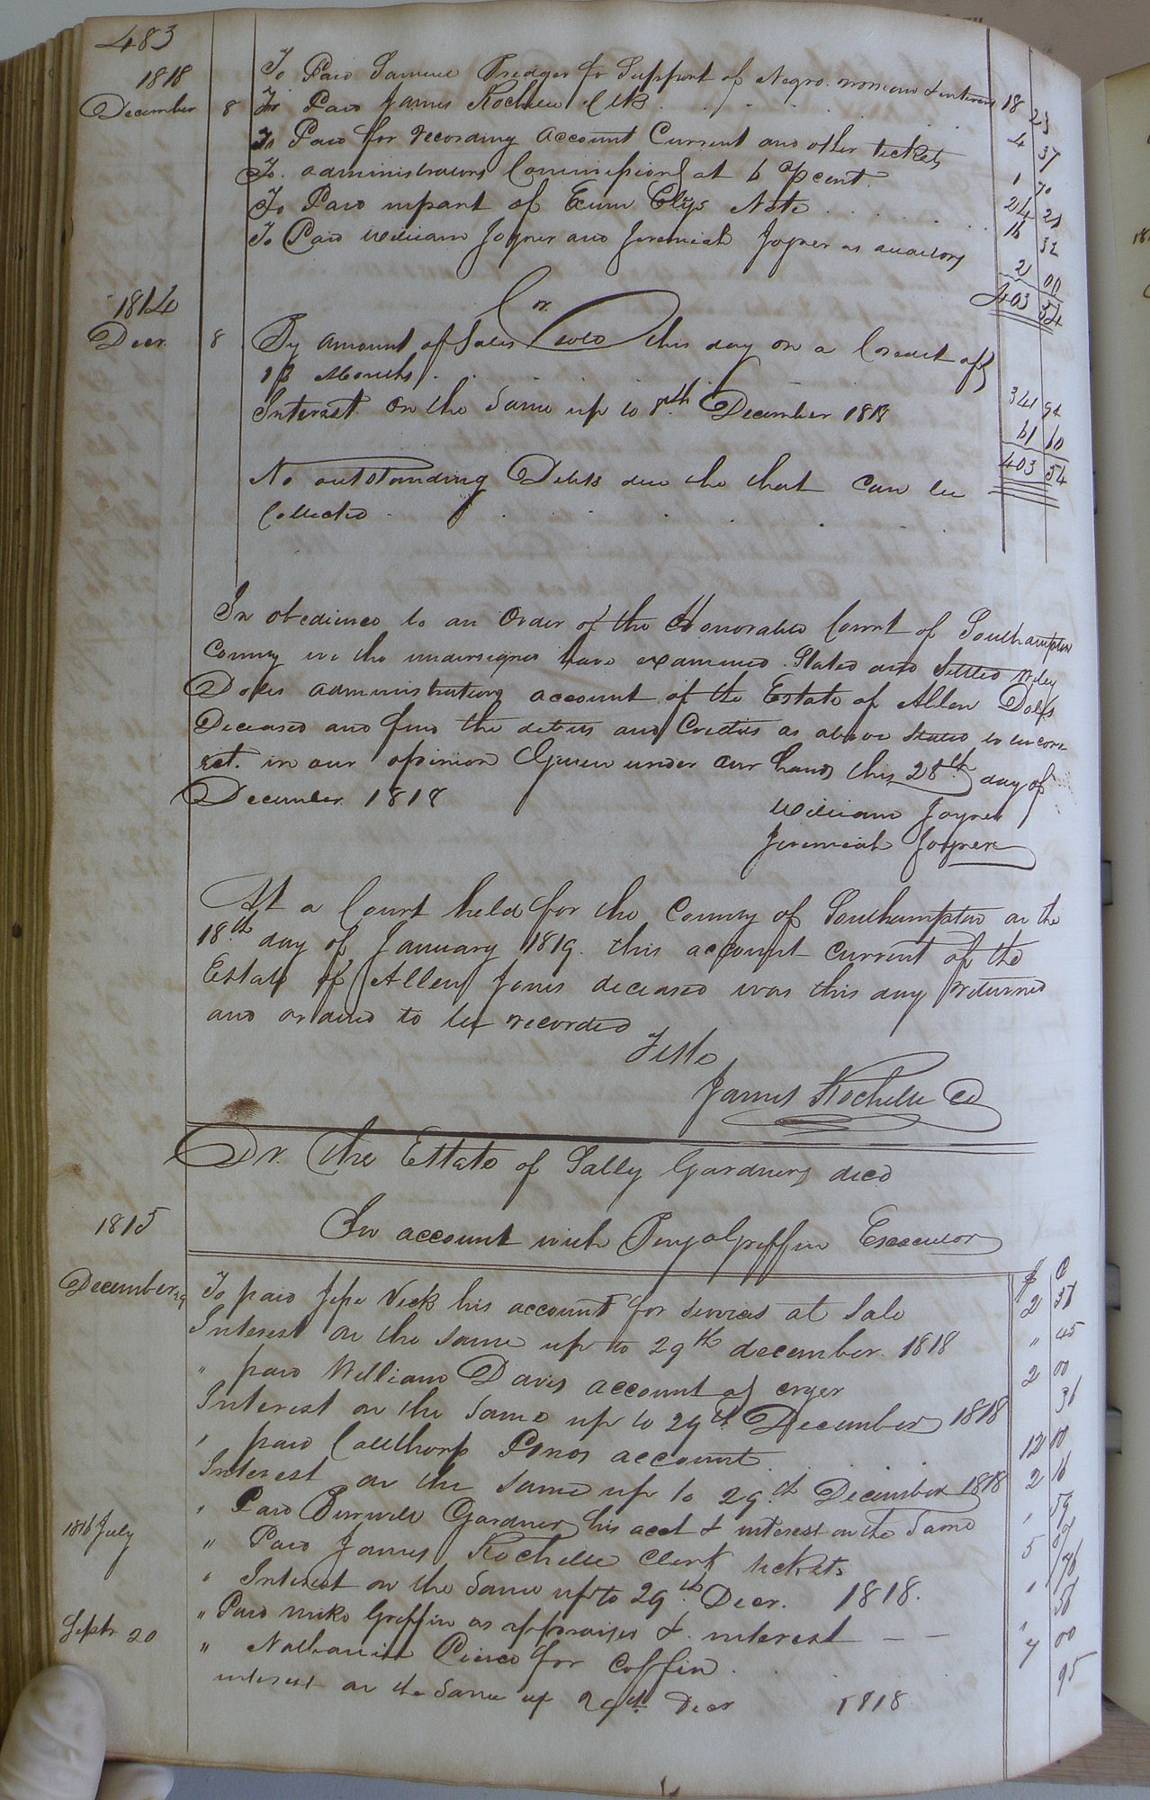 483
1818 To Paid Samuel Bridger for Support of Negro woman & interest 18 23
December 8 To Paid James Rochelle Clk 4 37
To Paid for recording Account Current and other tickets 1 70
To administrators Commissions at 6 pcent 24 21
To Paid inpart of Exum Elys Note 16 32
To Paid William Joyner and Jeremiah Joyner as auditors 2 00
403 54
Cr.
1814
Decr. 8 By amount of Sales sold this day on a Credit of
Months 341 94
Interest on the Same up to 8th December 1818 61 60
403 54
No outstanding Debts due the that can be
Collected
In obedience to an Order of the Honorable Court of Southampton
County we the undersigned have examined Stated and Settled Wiley
Doles administrators account of the Estate of Allen Doles
Deceased and find the debits and Credits as above Stated to be corr
ect. in our opinion Given under our hands this 28th day of
December 1818
William Joyner
Jeremiah Joyner
At a Court held for the County of Southampton on the
18th day of January 1819 this account current of the
Estate of Allen Jones deceased was this day returned
and ordered to be recorded
Teste
James Rochelle CC
Dr. The Estate of Sally Gardners decd
1815 In account with Benja Griffin Executor
$ C
December 29 To paid Jesse Vick his account for services at Sale 2 37
Interest on the same up to 29th december 1818 " 45
" paid William Davis account of cryer 2 00
Interest on the Same up to 29th December 1818 36
" paid Calthorp account 12 00
Interest on the same up to 29th December 1818 2 16
" Paid Burwell Gardner his acct & interest on the Same , 59
1816 July " Paid James Rochelle Clerk tickets 5
" Interest on the Same up to 29th Decr. 1818.
" Paid Mike Griffin as appraiser & interest
Septr 20 " Nathaniel Pierce for Coffin 7 00
interest on the Same up 29th Decr 1818 95